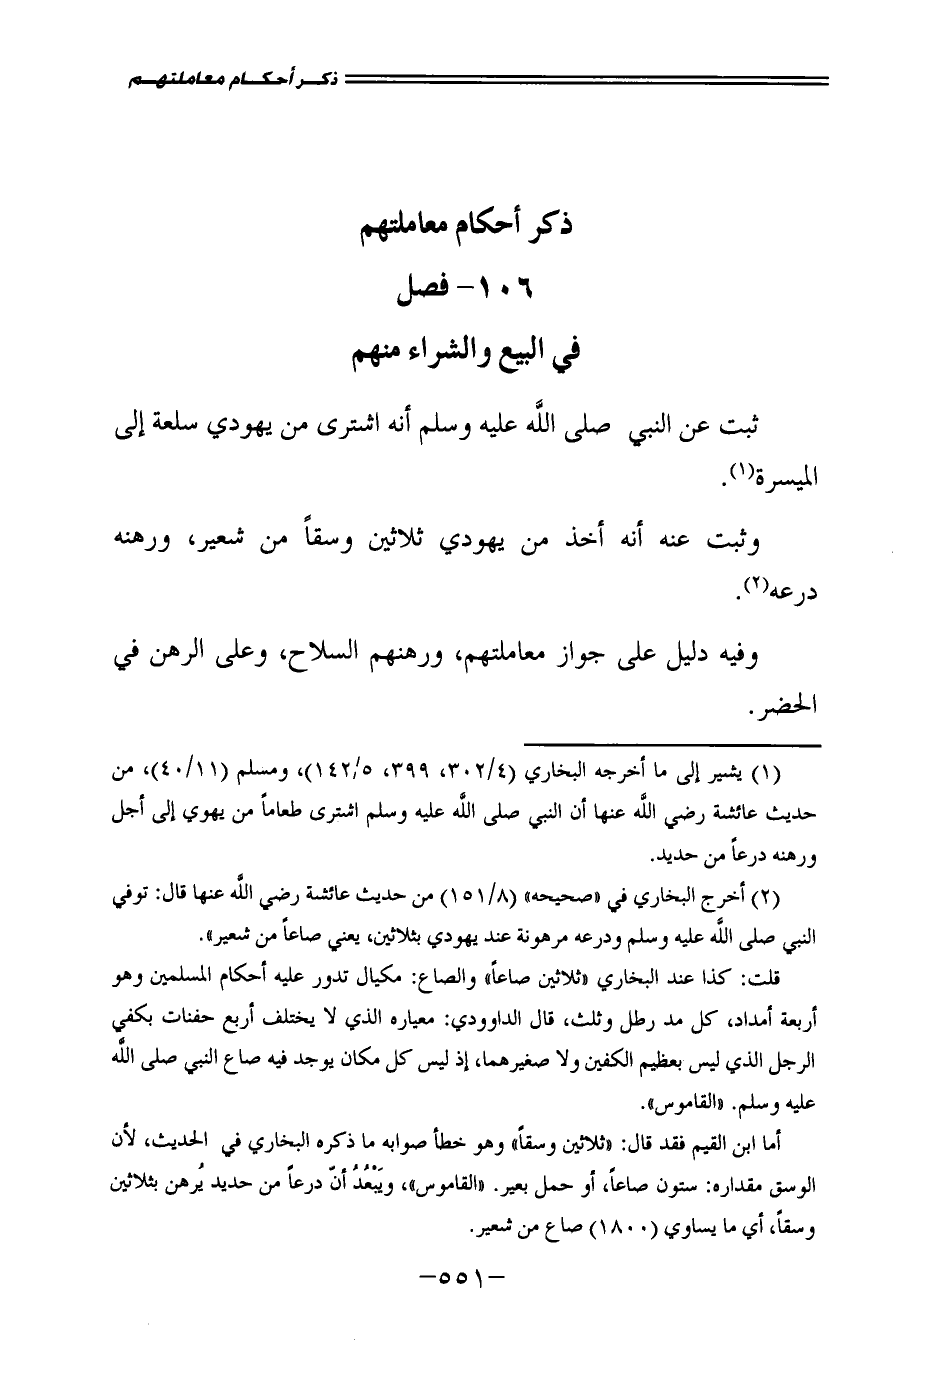 ذكر أحكام معاملتهم
ذكر أحكام معاملتهم
١٠٦- فصل
في البيع والشراء منهم
ثبت عن النبي صلى اللَّه عليه وسلم أنه اشترى من يهودي سلعة إلى
الميسرة(١).
وثبت عنه أنه أخذ من يهودي ثلاثين وسقاً من شعير، ورهنه
درعه(٢).
وفيه دليل على جواز معاملتهم، ورهنهم السلاح، وعلى الرهن في
الحضر.
(١) يشير إلى ما أخرجه البخاري (٣٠٢/٤، ٣٩٩، ١٤٢/٥)، ومسلم (٤٠/١١)، من
حديث عائشة رضي اللَّه عنها أن النبي صلى اللَّه عليه وسلم اشترى طعاماً من يهوي إلى أجل
ورهنه درعاً من حديد.
(٢) أخرج البخاري في «صحيحه» (١٥١/٨) من حديث عائشة رضي اللَّه عنها قال: توفي
النبي صلى اللَّه عليه وسلم ودرعه مرهونة عند يهودي بثلاثين، يعني صاعاً من شعير».
قلت: كذا عند البخاري «ثلاثين صاعاً» والصاع: مكيال تدور عليه أحكام المسلمين وهو
أربعة أمداد، كل مد رطل وثلث، قال الداوودي: معياره الذي لا يختلف أربع حفنات بكفي
الرجل الذي ليس بعظيم الكفين ولا صغيرهما، إذ ليس كل مكان يوجد فيه صاع النبي صلى اللَّه
عليه وسلم. «القاموس».
أما ابن القيم فقد قال: «ثلاثين وسقاً» وهو خطأ صوابه ما ذكره البخاري في الحديث، لأن
الوسق مقداره: ستون صاعاً، أو حمل بعير. «القاموس»، ويَبْعُدُ أنّ درعاً من حديد يُرهن بثلاثين
وسقاً، أي ما يساوي (١٨٠٠) صاع من شعير.
-٥٥١-